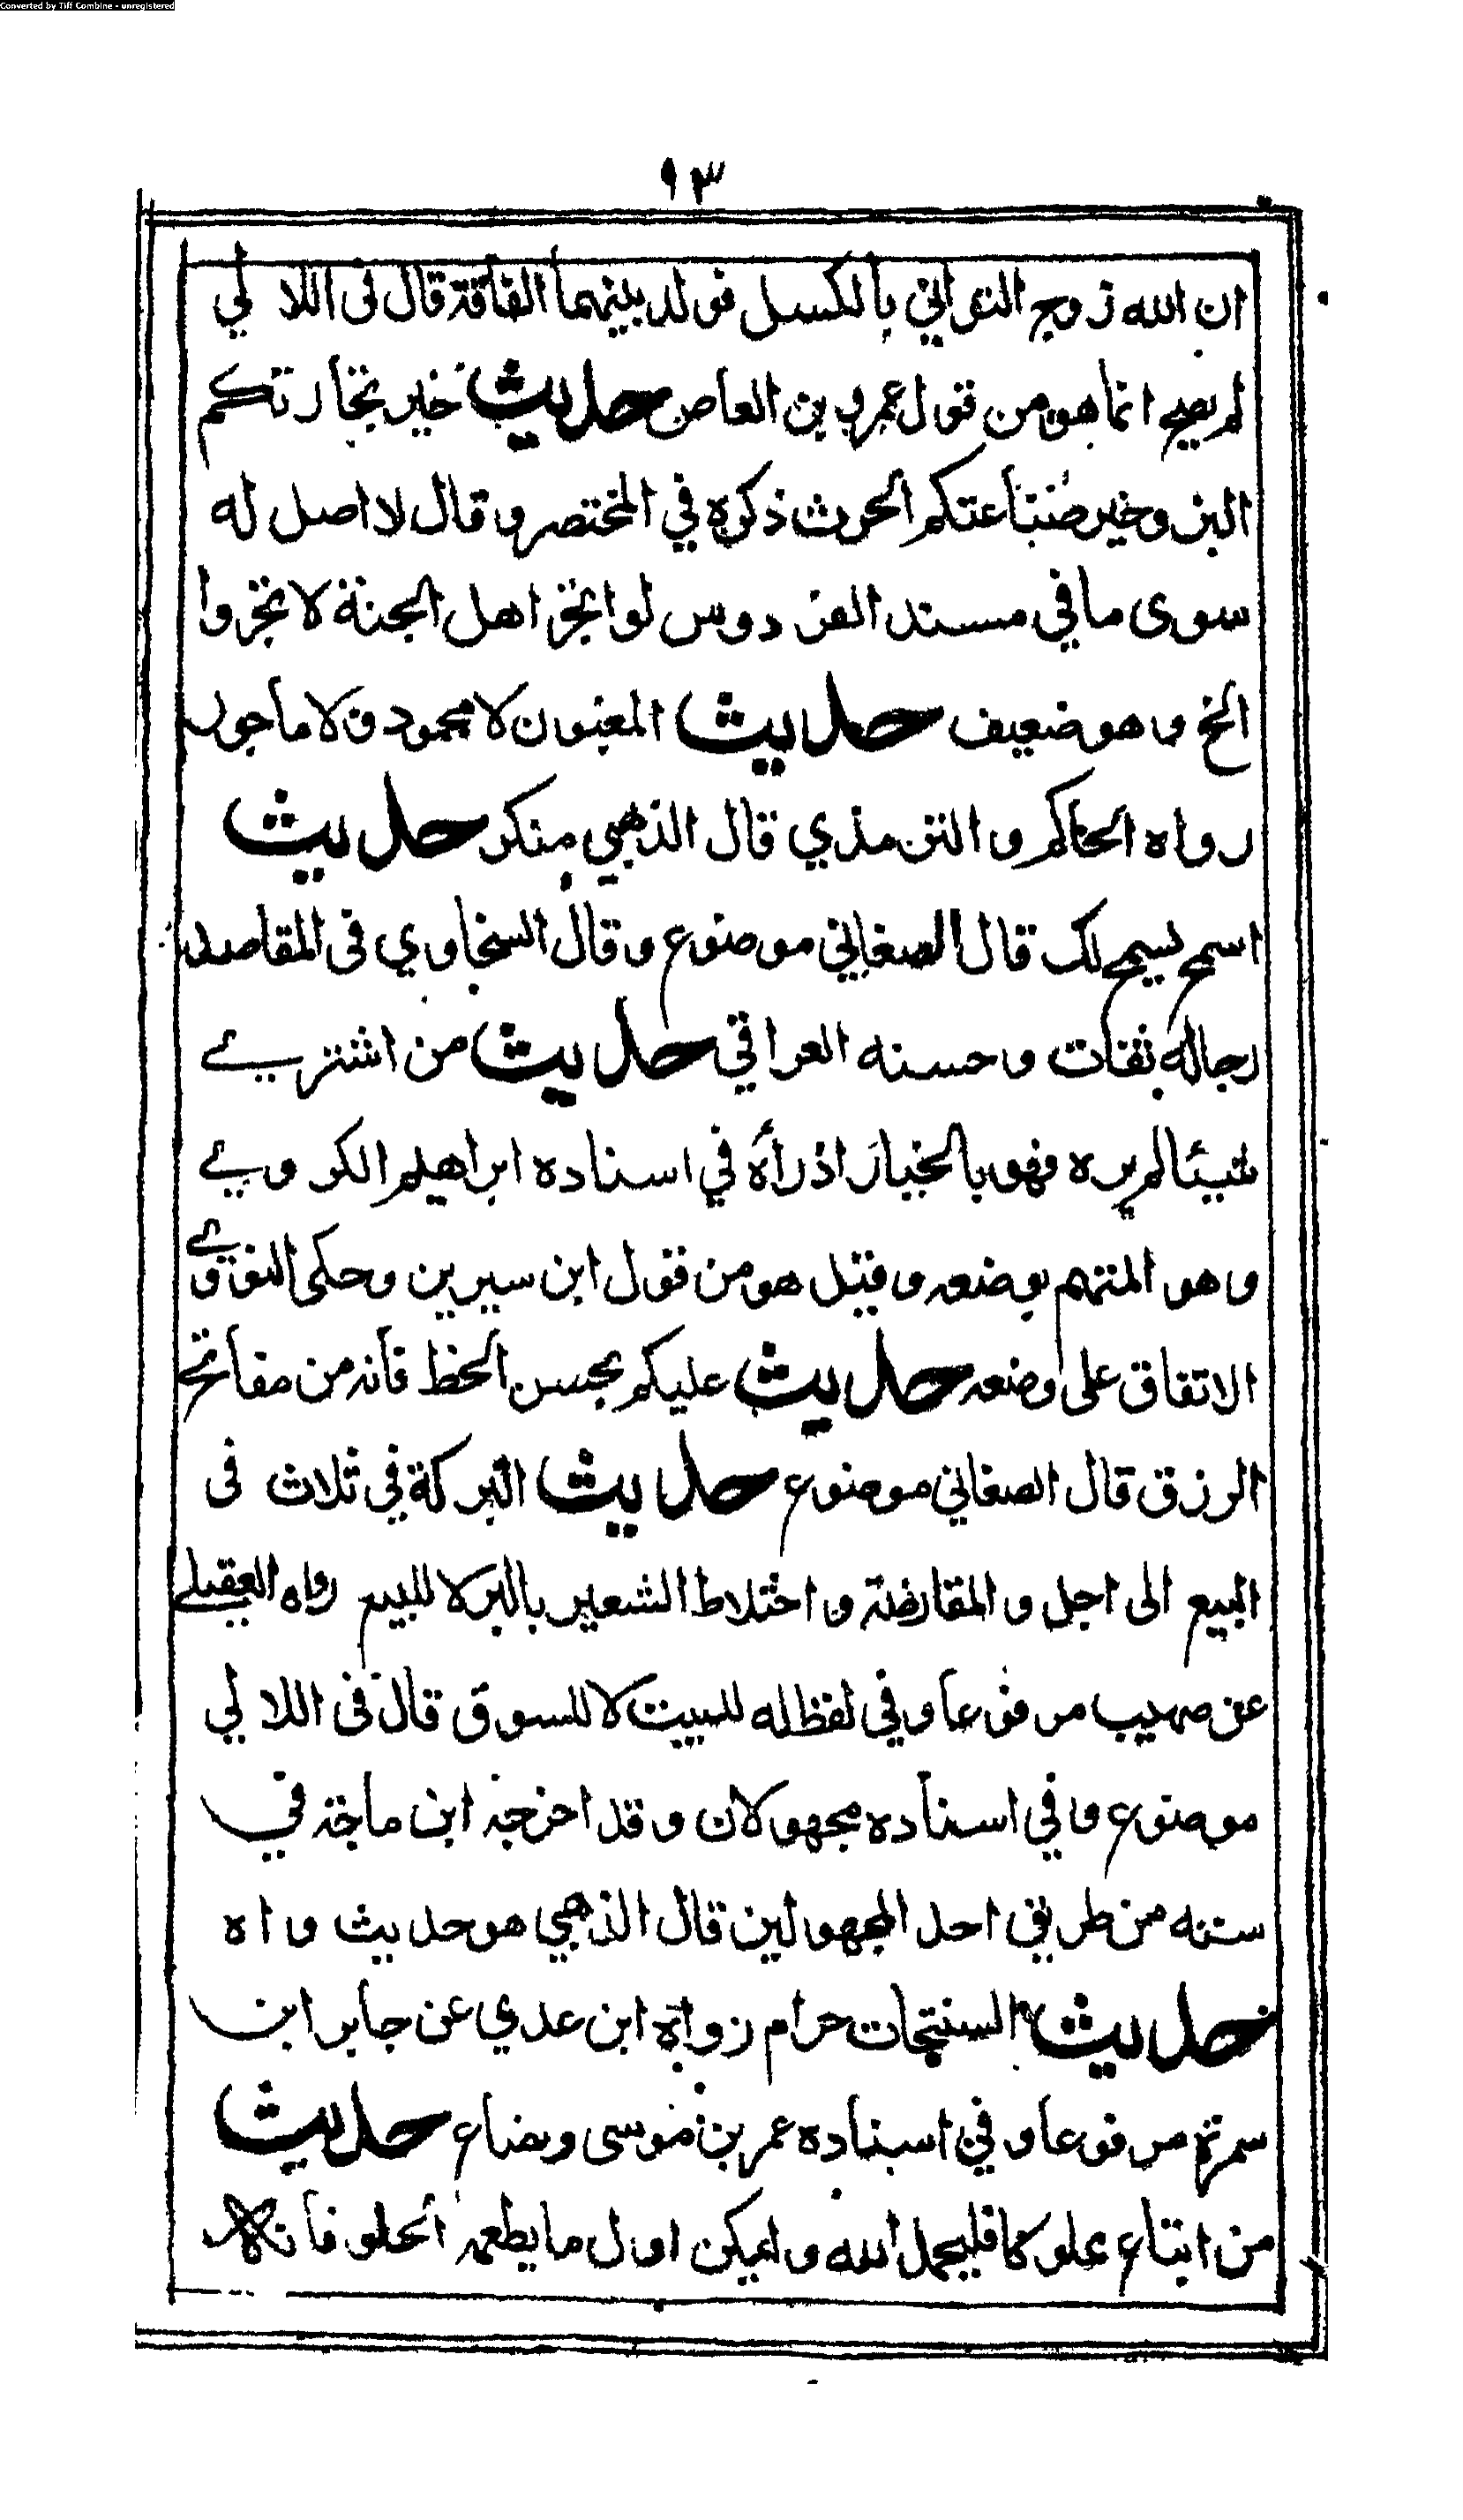 Converted by Tiff Combine - unregistered
٩٣
ان الله زوج التواني بالكسل فولد بينهما الفاقة قال فى اللالي
لم يصح انما هو من قول عمرو بن العاص حديث خير تجارتكم
البز وخير صناعتكم الحرث ذكره في المختصر وقال لا اصل له
سوى ما في مسند الفردوس لو اتجر اهل الجنة لاتجروا
الخ وهو ضعيف حديث المغبون لا محمود ولا ماجور
رواه الحاكم والترمذي قال الذهبي منكر حديث
اسمح يسمح لك قال الصغاني موضوع وقال السخاوي فى المقاصد
رجاله ثقات وحسنه العراقي حديث من اشترے
شيئا لم يره فهو بالخيار اذا رأه في اسناده ابراهيم الكروے
وهو المتهم بوضعه وقيل هو من قول ابن سيرين وحكى النووے
الاتفاق على وضعه حديث عليكم بحسن الخط فانه من مفاتح
الرزق قال الصغاني موضوع حديث البركة في ثلاث فى
البيع الى اجل والمقارضة واختلاط الشعير بالبر لا للبيع رواه العقيلے
عن صهيب مرفوعا وفي لفظ له للبيت لا للسوق قال فى اللالي
موضوع وفي اسناده مجهولان وقد اخرجه ابن ماجة في
سننه من طريق احد المجهولين قال الذهبي هو حديث واه
حديث السفتجات حرام رواه ابن عدي عن جابر ابن
سمرة مرفوعا وفي اسناده عمر بن موسى وضاع حديث
من ابتاع مملوكا فليحمد الله وليكن اول ما يطعمه الحلو فانه